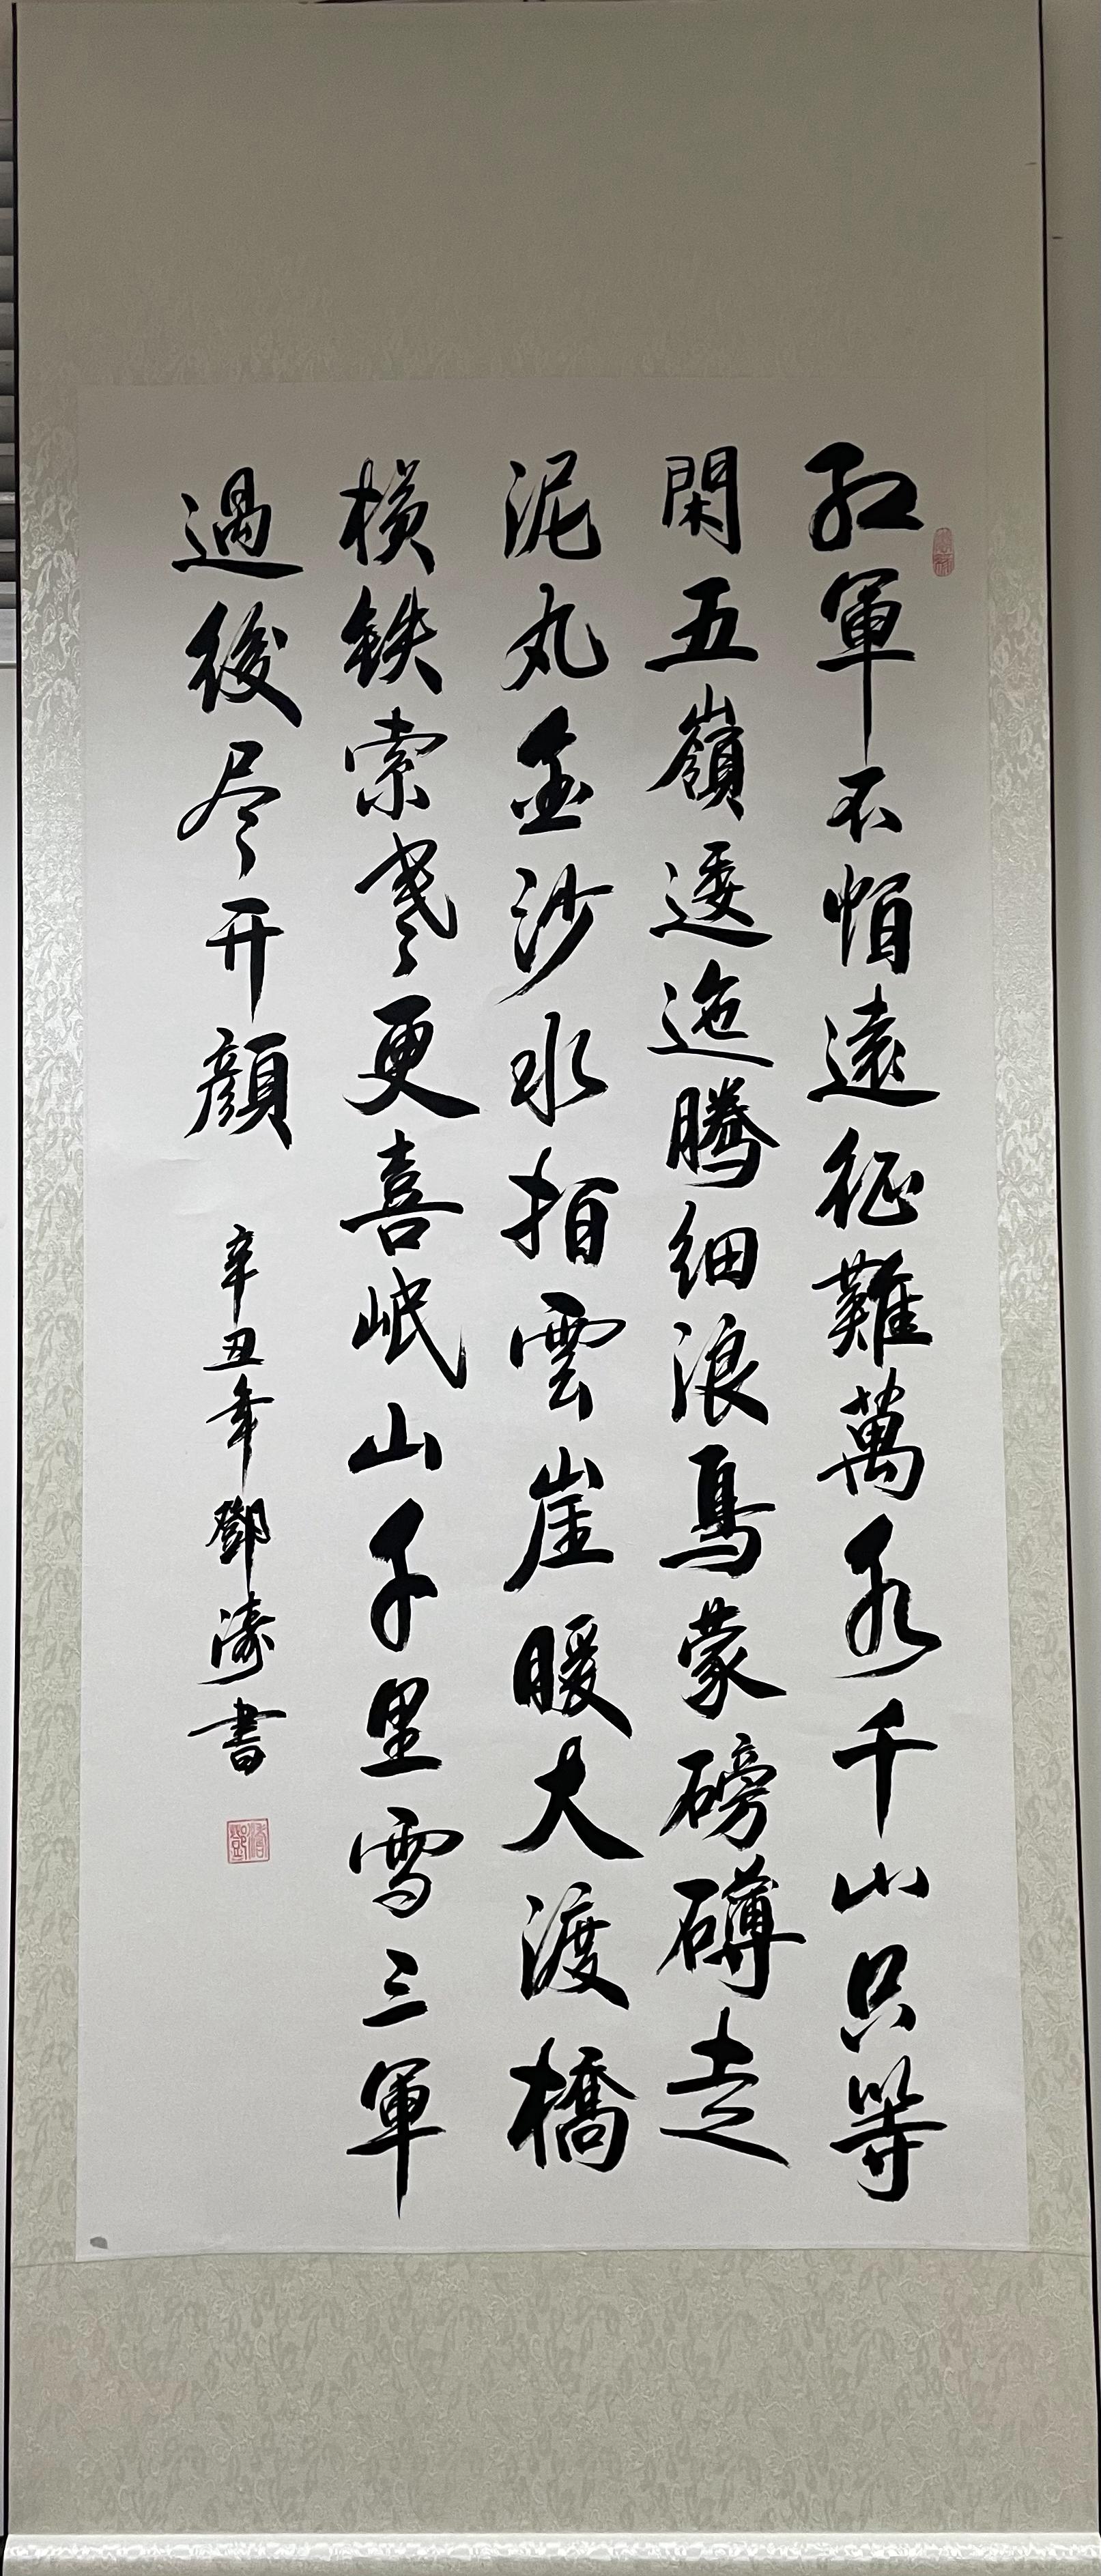 红軍不怕遠征難萬水千山只等
閑五嶺逶迤騰细浪烏蒙磅礴走
泥丸金沙水拍雲崖暖大渡橋
横铁索寒更喜岷山千里雪三軍
過後尽开顔
辛丑年鄧濤書